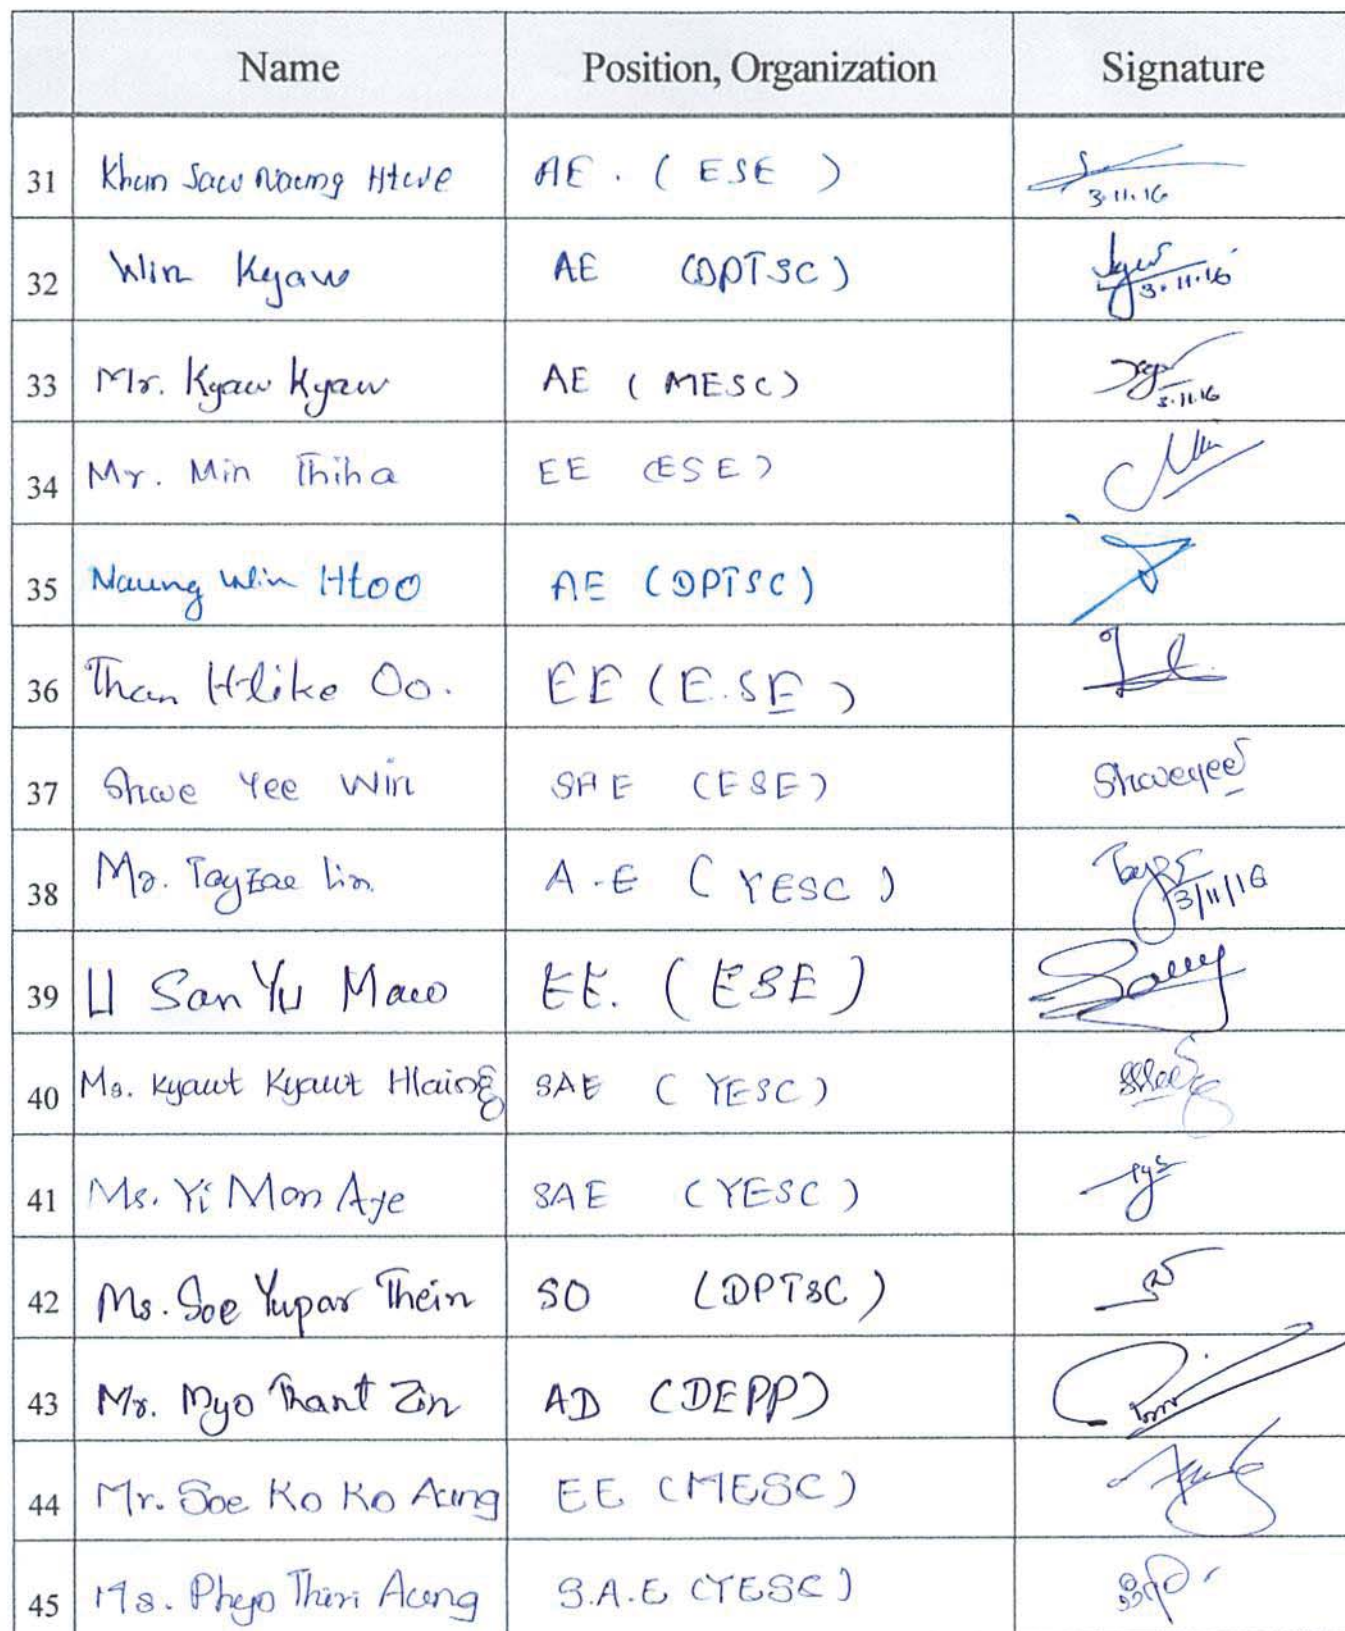 Name Position, Organization Signature
31 Khun Saw Naung Htwe AE . ( ESE ) 3.11.16
32 Win Kyaw AE (DPTSC) 3.11.16
33 Mr. Kyaw Kyaw AE ( MESC) 3.11.16
34 Mr. Min Thiha EE (ESE)
35 Naung Win Htoo AE (DPTSC)
36 Than Hlike Oo. EE (E.SE)
37 Shwe Yee Win SAE (ESE) Shweyee
38 Mr. Tayzar Lin A.E ( YESC ) 3/11/16
39 U San Yu Maw EE. (ESE)
40 Ms. Kyawt Kyawt Hlaing SAE ( YESC )
41 Ms. Yi Mon Aye SAE (YESC )
42 Ms. Soe Yupar Thein SO (DPTSC )
43 Mr. Myo Thant Zin AD (DEPP)
44 Mr. Soe Ko Ko Aung EE (MESC)
45 Ms. Phyo Thiri Aung S.A.E (YESC)